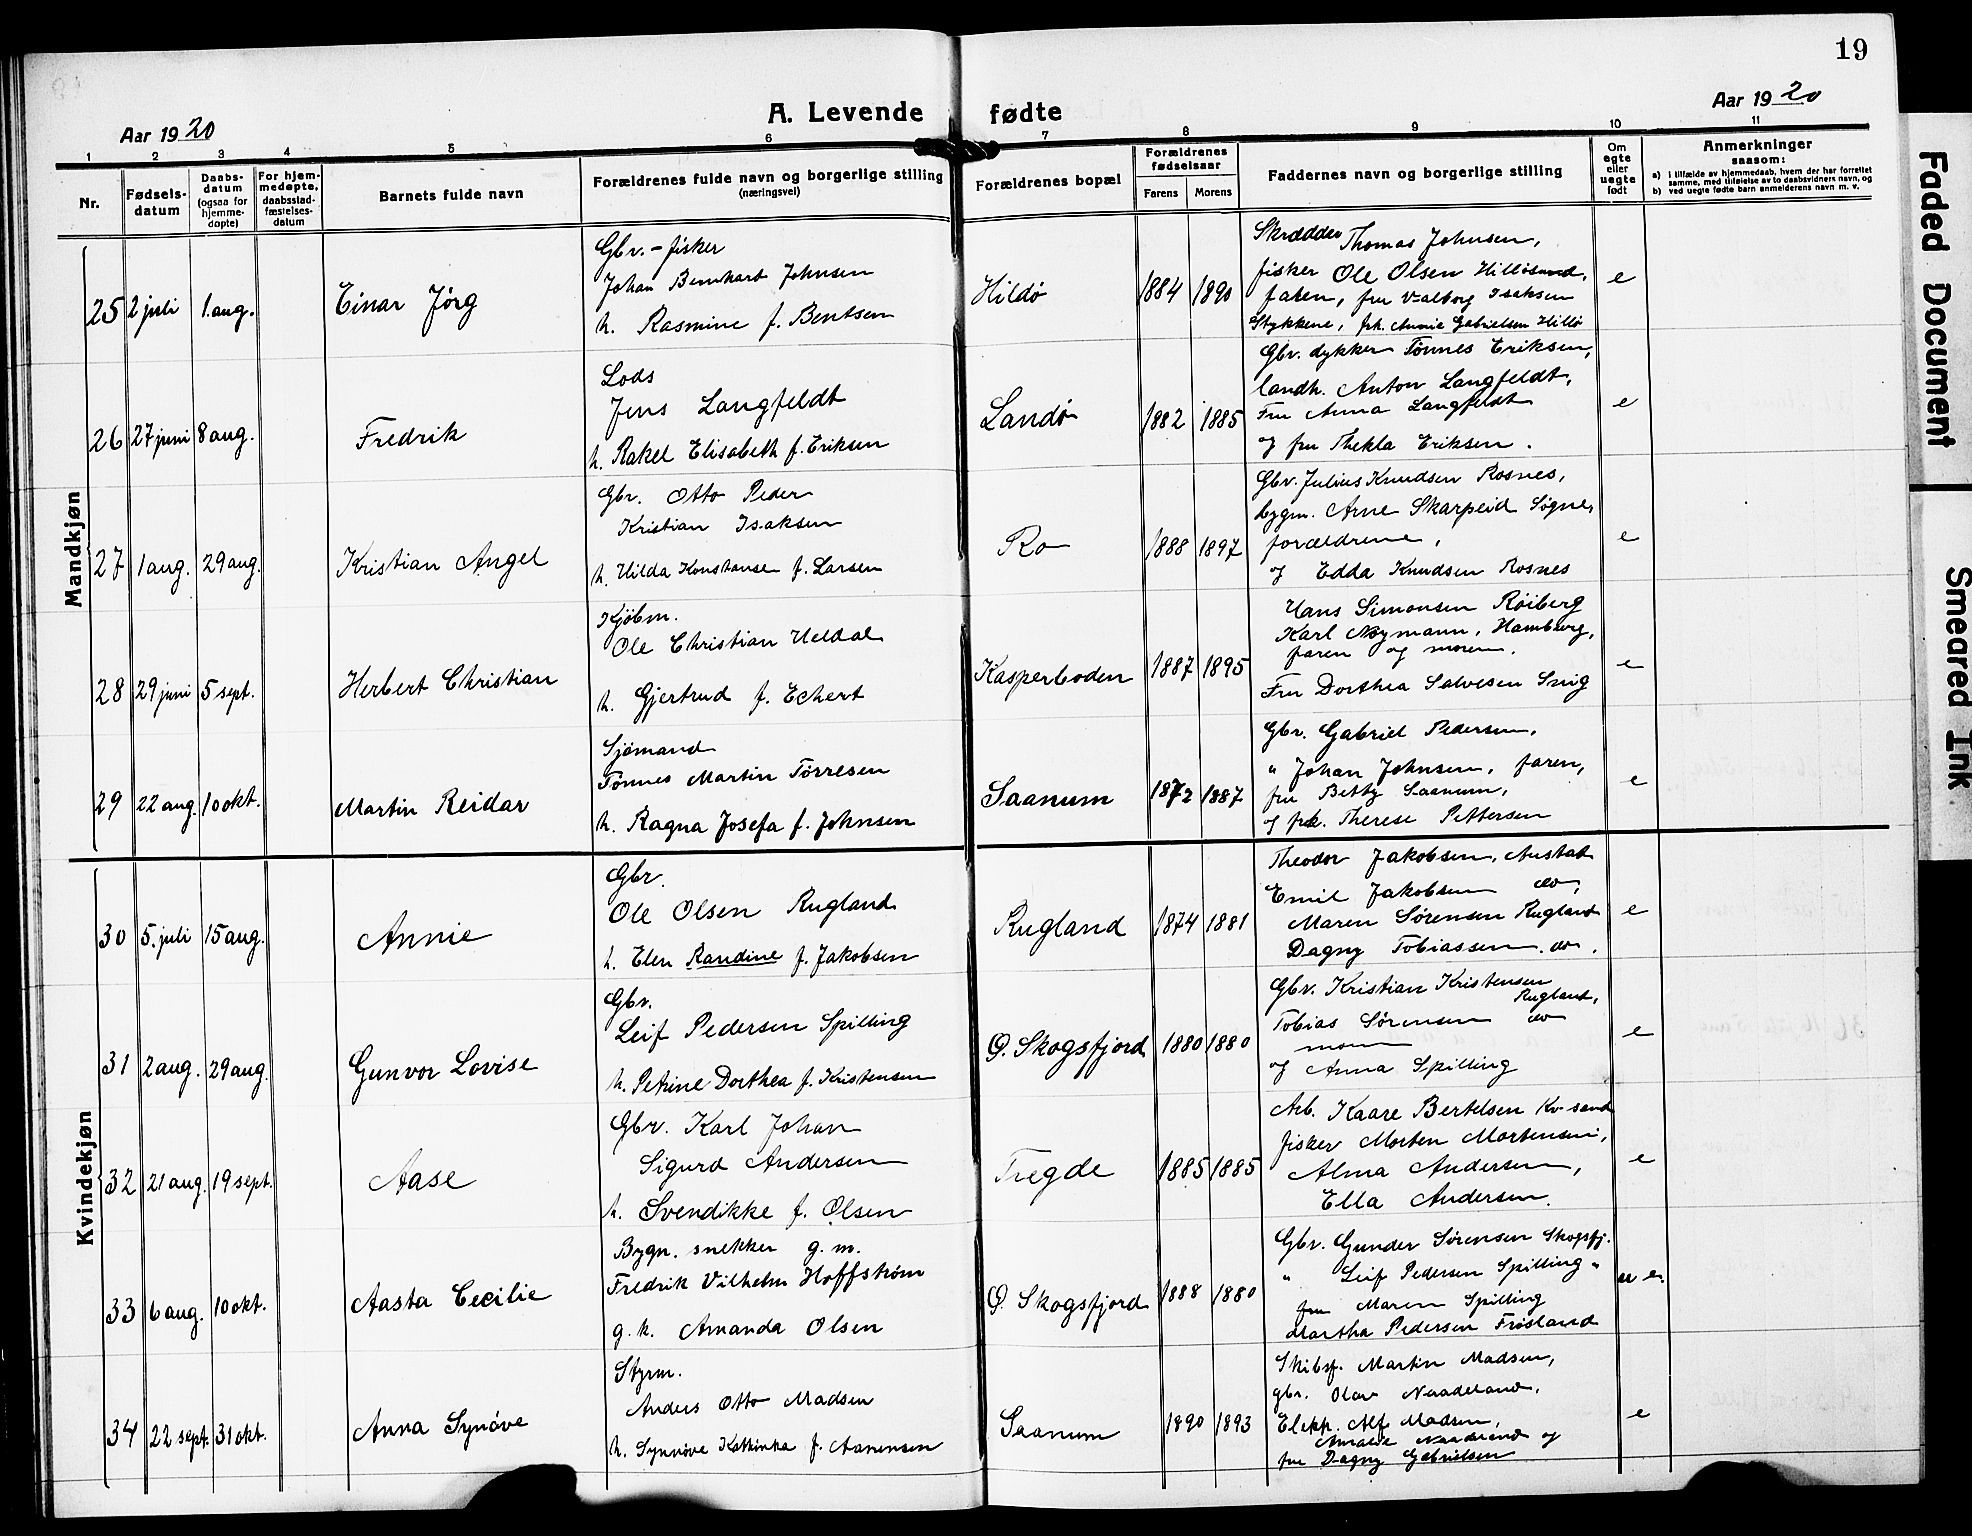 19
Aar 1920
A. Levende fødte
Aar 1920
1 2 3 4 5 6 7 8 9 10 11
Nr.
Fødsels-
datum
Daabs-
datum
(ogsaa for
hjemme-
døpte)
For hjem-
medøpte,
daabsstad-
fæstelses-
datum
Barnets fulde navn
Forældrenes fulde navn og borgerlige stilling
(næringsvei)
Forældrenes bopæl
Forældrenes
fødselsaar
Farens
Morens
Faddernes navn og borgerlige stilling
Om
egte
eller
uegte
født
Anmerkninger
saasom:
a) i tilfælde av hjemmedaab, hvem der har forrettet
samme, med tilføielse av to daabsvidners navn, og
b) ved uegte fødte barn anmelderens navn m. v.
Mandkjøn
25 2 juli 1. aug.
Einar Jørg
Gbr. - fisker
Johan Bernhart Johnsen
h. Rasmine f. Bentsen
Hildø
1884 1890
Skrædder Thomas Johnsen,
fisker Ole Olsen Hilløsund,
faren, fru Valborg Isaksen
Stykkene, frk. Annie Gabrielsen Hillø
e
26 27 juni 8 aug.
Fredrik
Lods
Jens Langfeldt
h. Rakel Elisabeth f. Eriksen
Landø
1882 1885
Gbr. dykker Tønnes Eriksen,
landh. Anton Langfeldt,
Fru Anna Langfeldt
og fru Thekla Eriksen.
e
27 1 aug. 29 aug.
Kristian Angel
Gbr. Otto Peder
Kristian Isaksen
h. Hilda Konstanse f. Larsen
Ro
1888 1897
Gbr. Julius Knudsen Rosnes,
bygm. Arne Skarpeid Søgne,
forældrene,
og Edda Knudsen Rosnes
e
28 29 juni 5 sept.
Herbert Christian
Kjøbm.
Ole Christian Heldal
h. Gjertrud f. Echert
Kasperboden
1887 1895
Hans Simonsen Røiberg
Karl Noymann, Hamburg,
faren og moren.
Fru Dorthea Salvesen Snig
e
29 22 aug. 10 okt.
Martin Reidar
Sjømand
Tønnes Martin Tørresen
h. Ragna Josefa f. Johnsen
Saanum
1872 1887
Gbr. Gabriel Pedersen,
" Johan Johnsen, faren,
fru Betty Saanum,
og frk. Therese Pettersen
e
Kvindekjøn
30 5. juli 15 aug.
Annie
Gbr.
Ole Olsen Rugland
h. Elen Randine f. Jakobsen
Rugland
1874 1881
Theodor Jakobsen, Austad
Emil Jakobsen do,
Maren Sørensen Rugland
Dagny Tobiassen do.
e
31 2 aug. 29 aug.
Gunvor Lovise
Gbr.
Leif Pedersen Spilling
h. Petrine Dorthea f. Kristensen
Ø. Skogsfjord
1880 1880
Gbr. Kristian Kristensen
Rugland,
Tobias Sørensen do
moren
og Anna Spilling
e
32 21 aug. 19 sept.
Aase
Gbr. Karl Johan
Sigurd Andersen
h. Svendikke f. Olsen
Tregde
1885 1885
Arb. Kaare Bertelsen Kr.sand
fisker Morten Mortensen,
Alma Andersen,
Ella Andersen.
e
33 6 aug. 10 okt.
Aasta Cecilie
Bygn. snekker g. m.
Fredrik Vilhelm Hoffstrøm
g. k. Amanda Olsen
Ø. Skogsfjord
1888 1880
Gbr. Gunder Sørensen Skogsfj.
" Leif Pedersen Spilling "
fru Maren Spilling
Martha Pedersen Frøsland
u e.
34 22 sept. 31 okt.
Anna Synøve
Styrm.
Anders Otto Madsen
h. Synnøve Kathinka f. Aanensen
Saanum
1890 1893
Skibsf. Martin Madsen,
gbr. Olav Naadeland,
Elekr. Alf Madsen,
Amalie Naadeland og
fru Dagny Gabrielsen
e
Faded Document
Smeared Ink